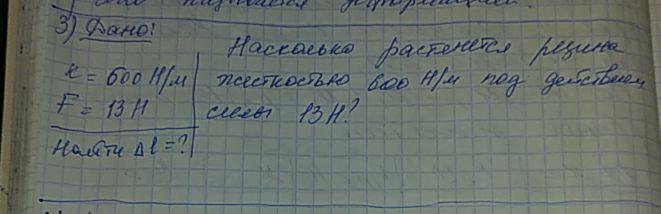 3) Дано:
Насколько растянется резина
k = 600 Н/м
жесткостью 600 Н/м под действием
F = 13 Н
силы 13 Н?
Найти Δl = ?